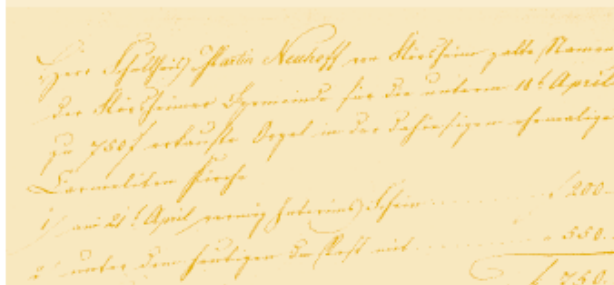 Herr Schultheis Martin Neuhoff von Flörsheim zalte Namens
der Flörsheimer Gemeinde für die unterm 18t April
zu 750 f erkaufte Orgel in der dahiesigen ehemaligen
Carmeliten Kirche
1) am 21t April vermög Interims Schein ........ f 200.
2) unter dem heutigen den Rest mit ........ " 550.
f 750.